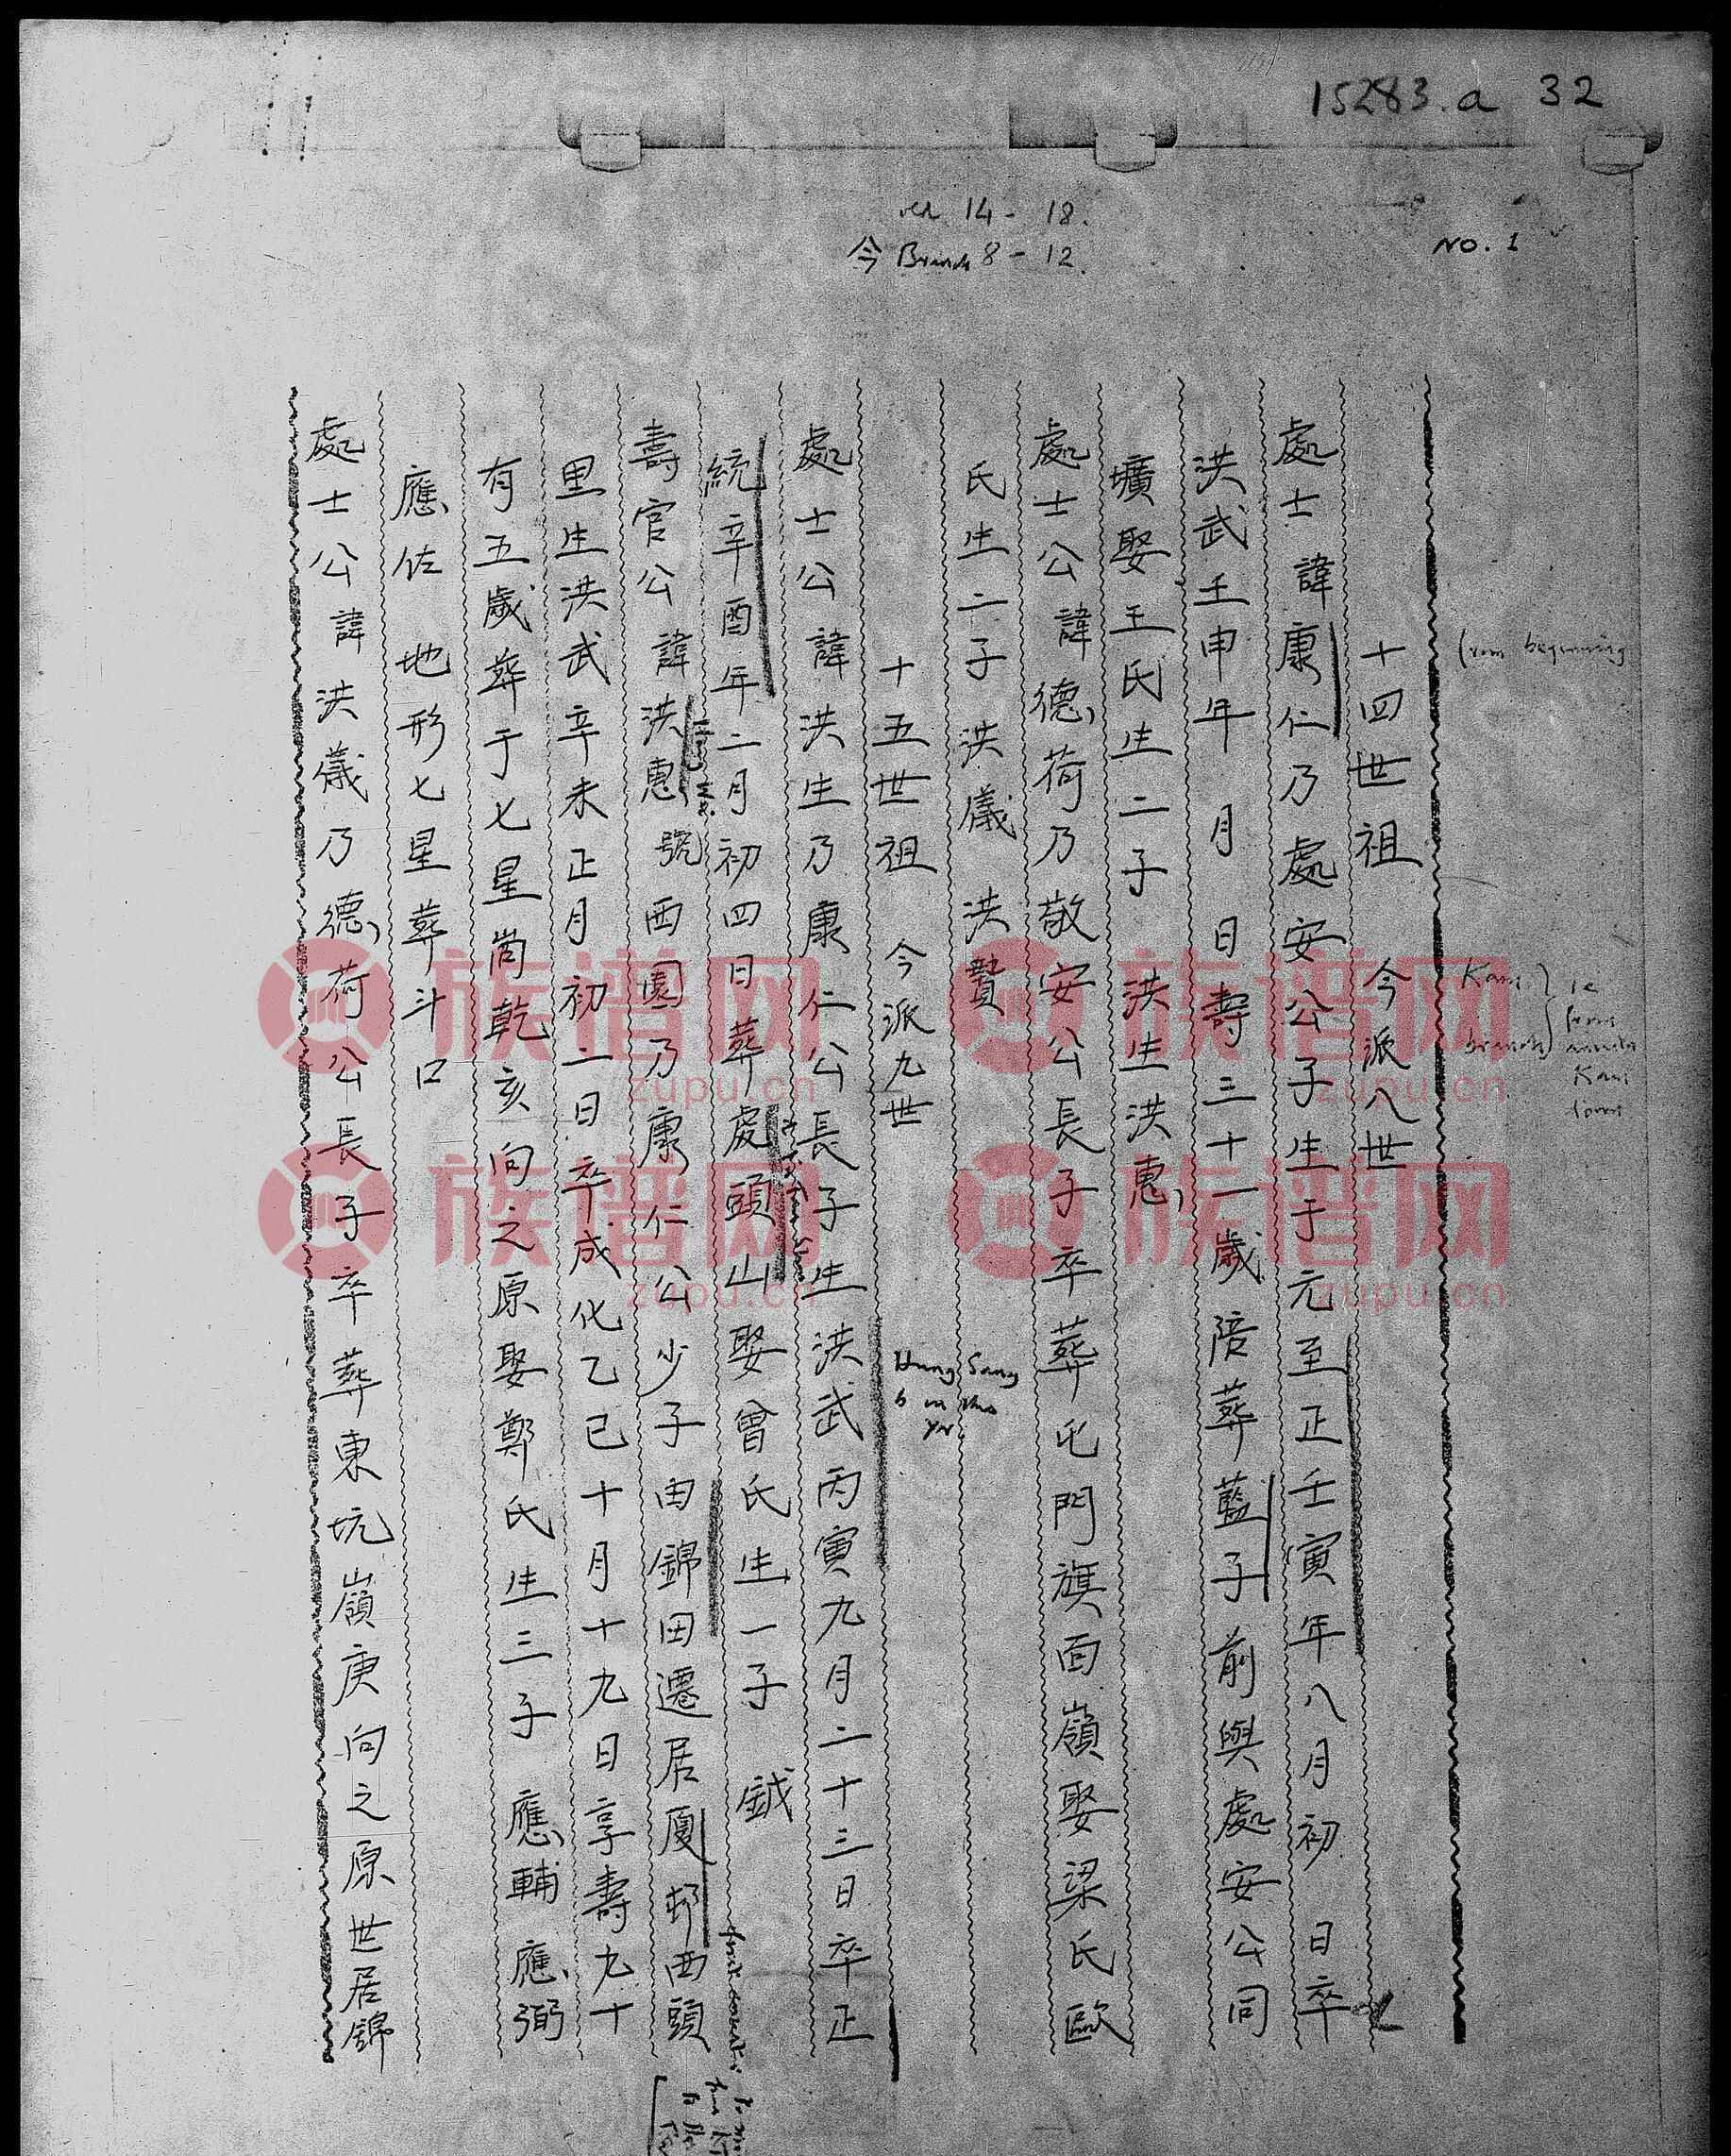 15283.a 32
14 - 18.
今 Branch 8 - 12.
NO. 1
(from beginning
Kam branch
十四世祖 今派八世
處士諱康仁乃處安公子生于元至正壬寅年八月初 日卒
洪武壬申年 月 日壽三十一歲陪葬藍子前與處安公同
壙娶王氏生二子 洪生洪惠
處士公諱德荷乃敬安公長子卒葬屯門旗面嶺娶梁氏歐
氏生二子 洪儀 洪贄
十五世祖 今派九世
Hung Sang
b in this
yr.
處士公諱洪生乃康仁公長子生洪武丙寅九月二十三日卒正
統辛酉年二月初四日葬處頭山娶曾氏生一子 鉞
壽官公諱洪惠號西園乃康仁公少子由錦田遷居厦邨西頭
里生洪武辛未正月初二日卒成化乙巳十月十九日享壽九十
有五歲葬于七星崗乾亥向之原娶鄭氏生三子 應輔 應弼
應佐 地形七星葬斗口
處士公諱洪儀乃德荷公長子卒葬東坑嶺庚向之原世居錦
族谱网
zupu.cn
族谱网
zupu.cn
族谱网
zupu.cn
族谱网
zupu.cn